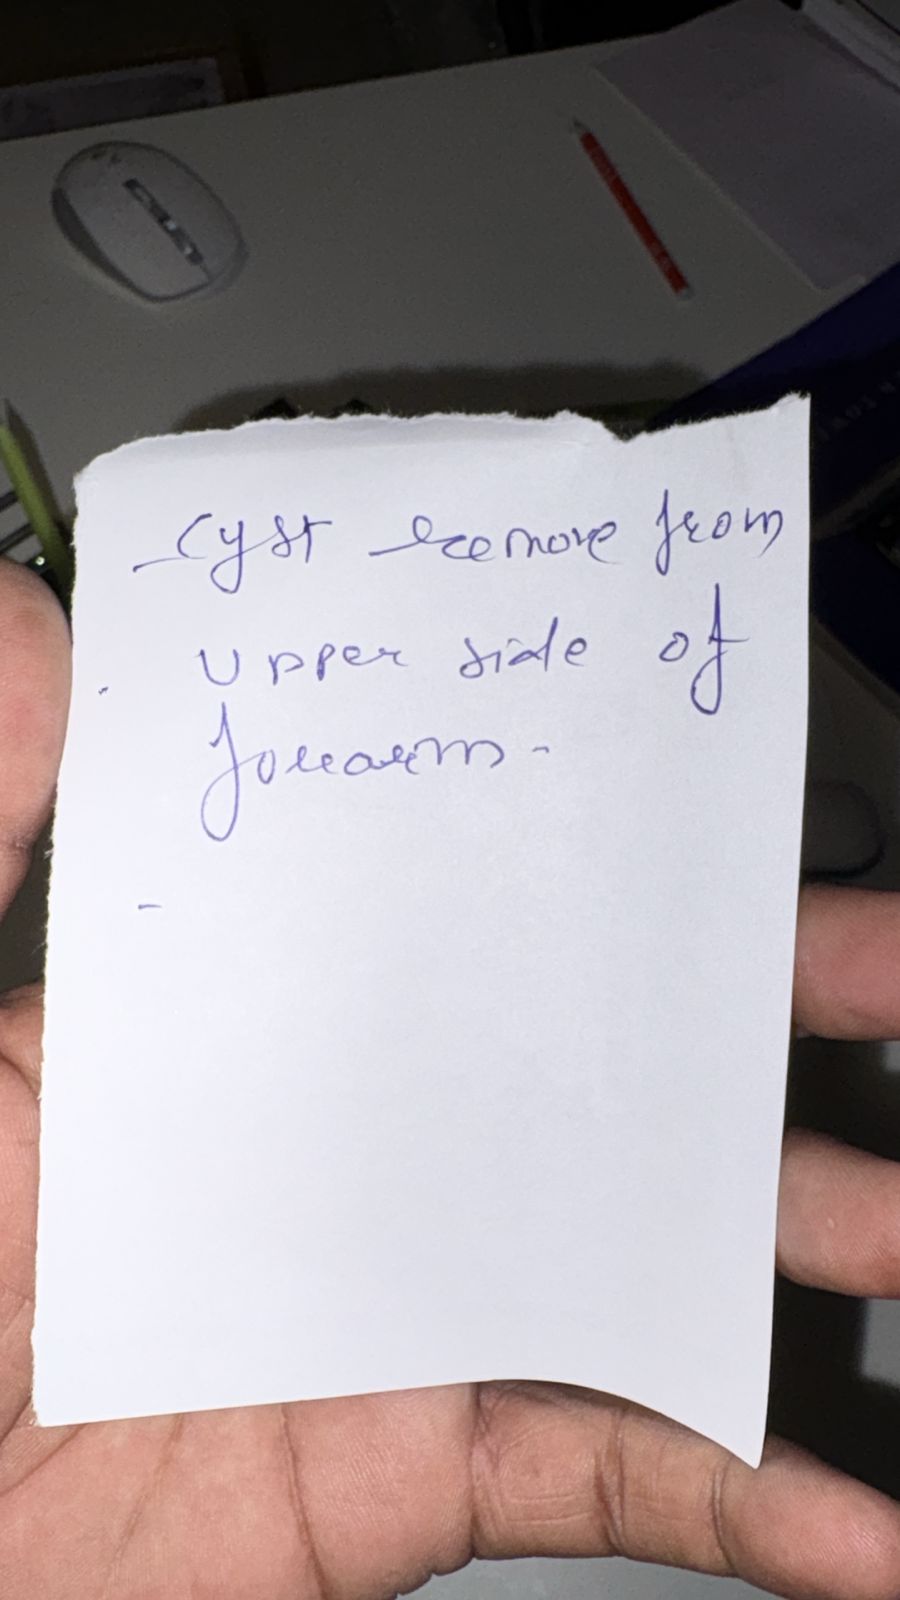 - Cyst remove from
upper side of
forearm -
-